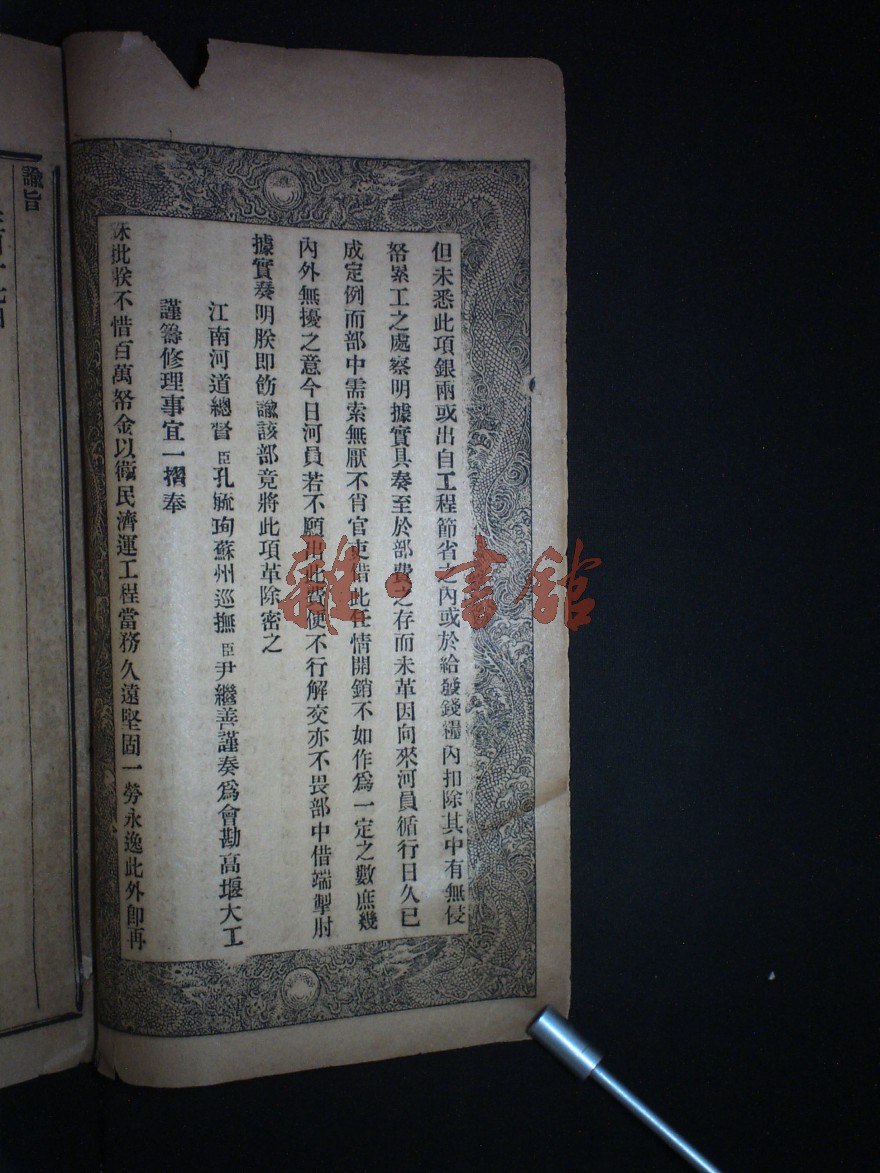 但未悉此項銀兩或出自工程節省之內或於給發錢糧內扣除其中有無侵
帑累工之處察明據實具奏至於部費之存而未革因向來河員循行日久已
成定例而部中需索無厭不肖官吏借此任情開銷不如作爲一定之數庶幾
內外無擾之意今日河員若不願出此費便不行解交亦不畏部中借端掣肘
據實奏明朕即飭諭該部竟將此項革除密之
江南河道總督臣孔毓珣蘇州巡撫臣尹繼善謹奏爲會勘高堰大工
謹籌修理事宜一摺奉
硃批朕不惜百萬帑金以衞民濟運工程當務久遠堅固一勞永逸此外即再
諭旨
雜·書館